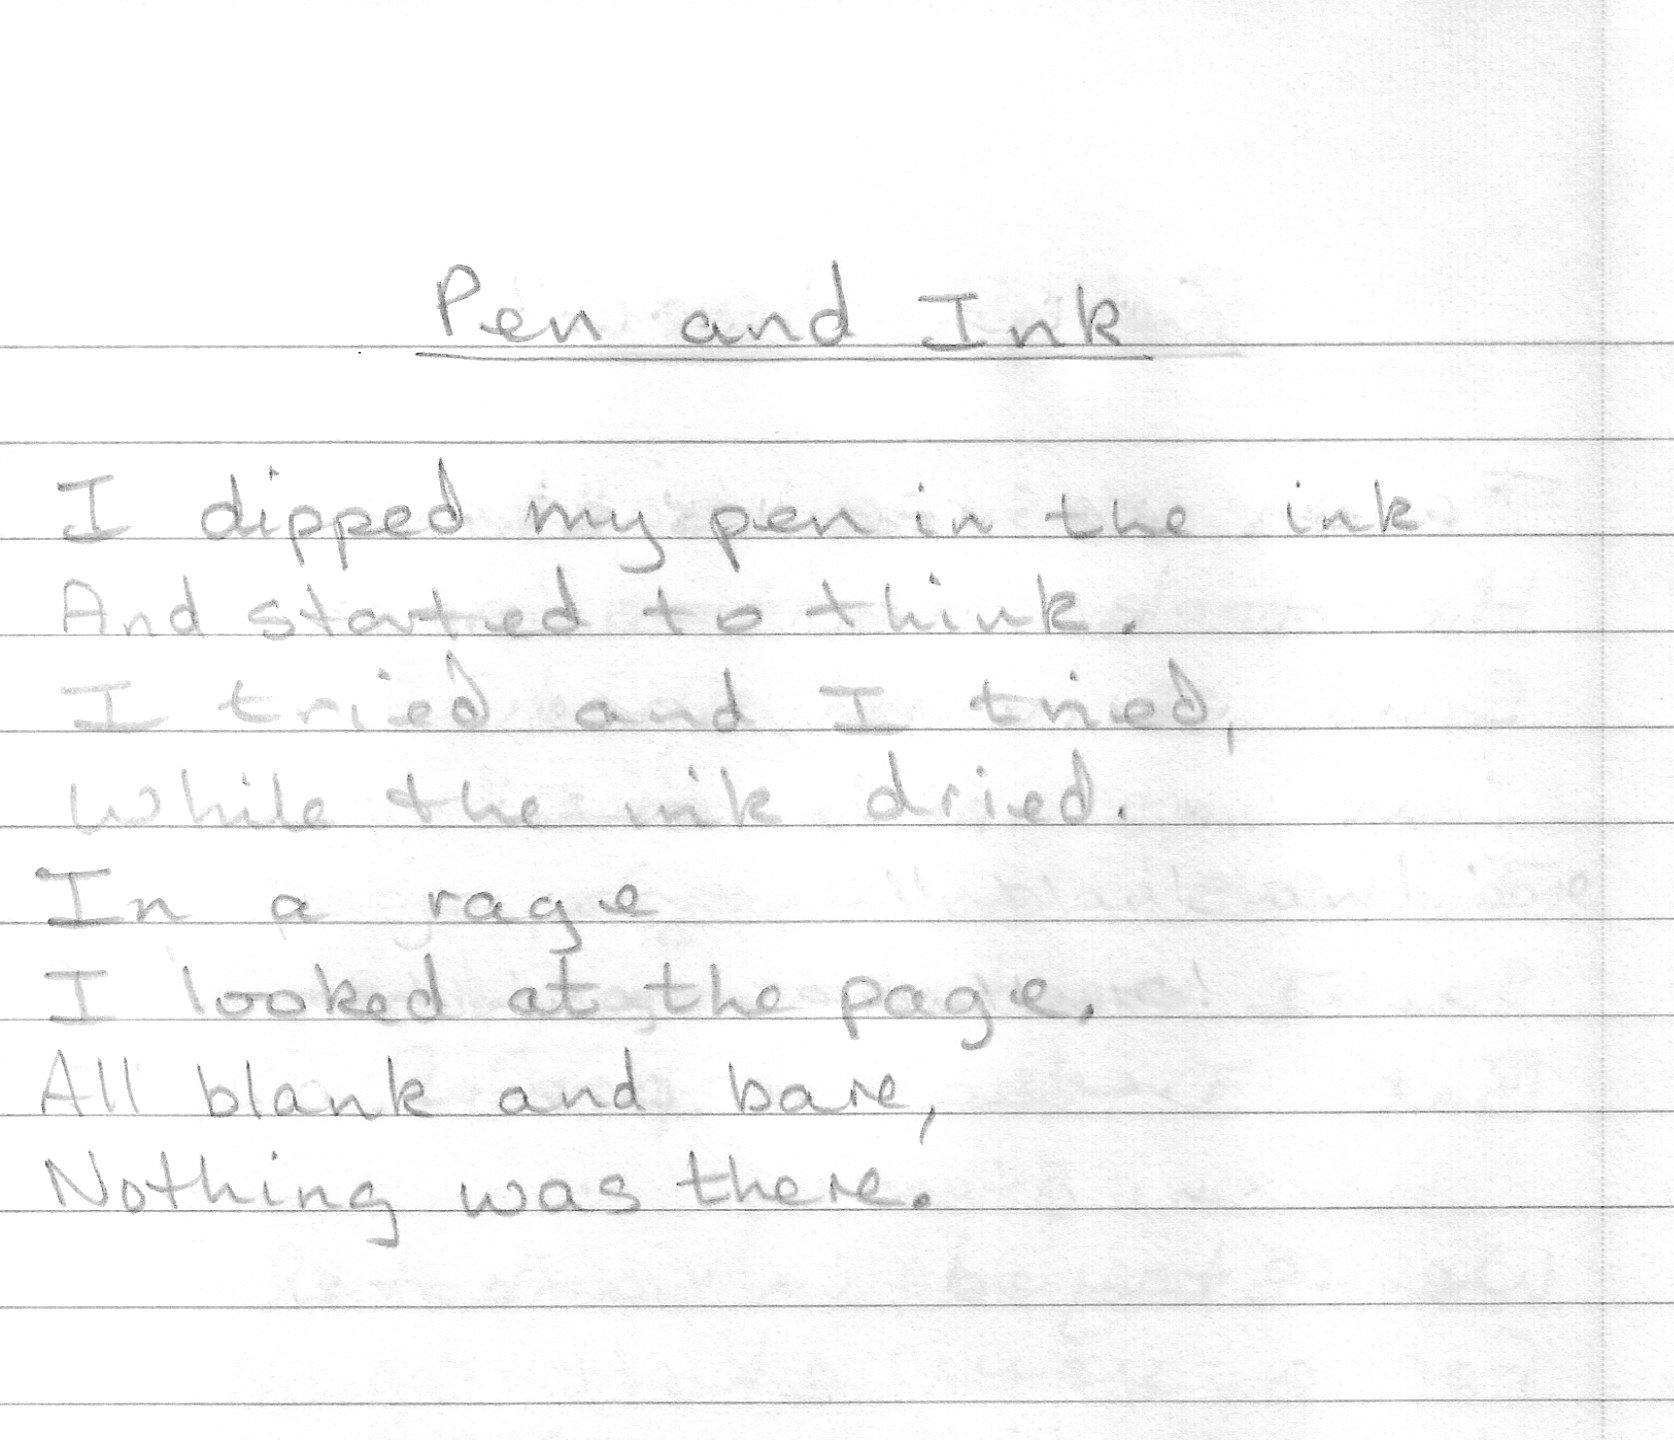 Pen and Ink
I dipped my pen in the ink
And started to think.
I tried and I tried,
While the ink dried.
In a rage
I looked at the page.
All blank and bare,
Nothing was there.